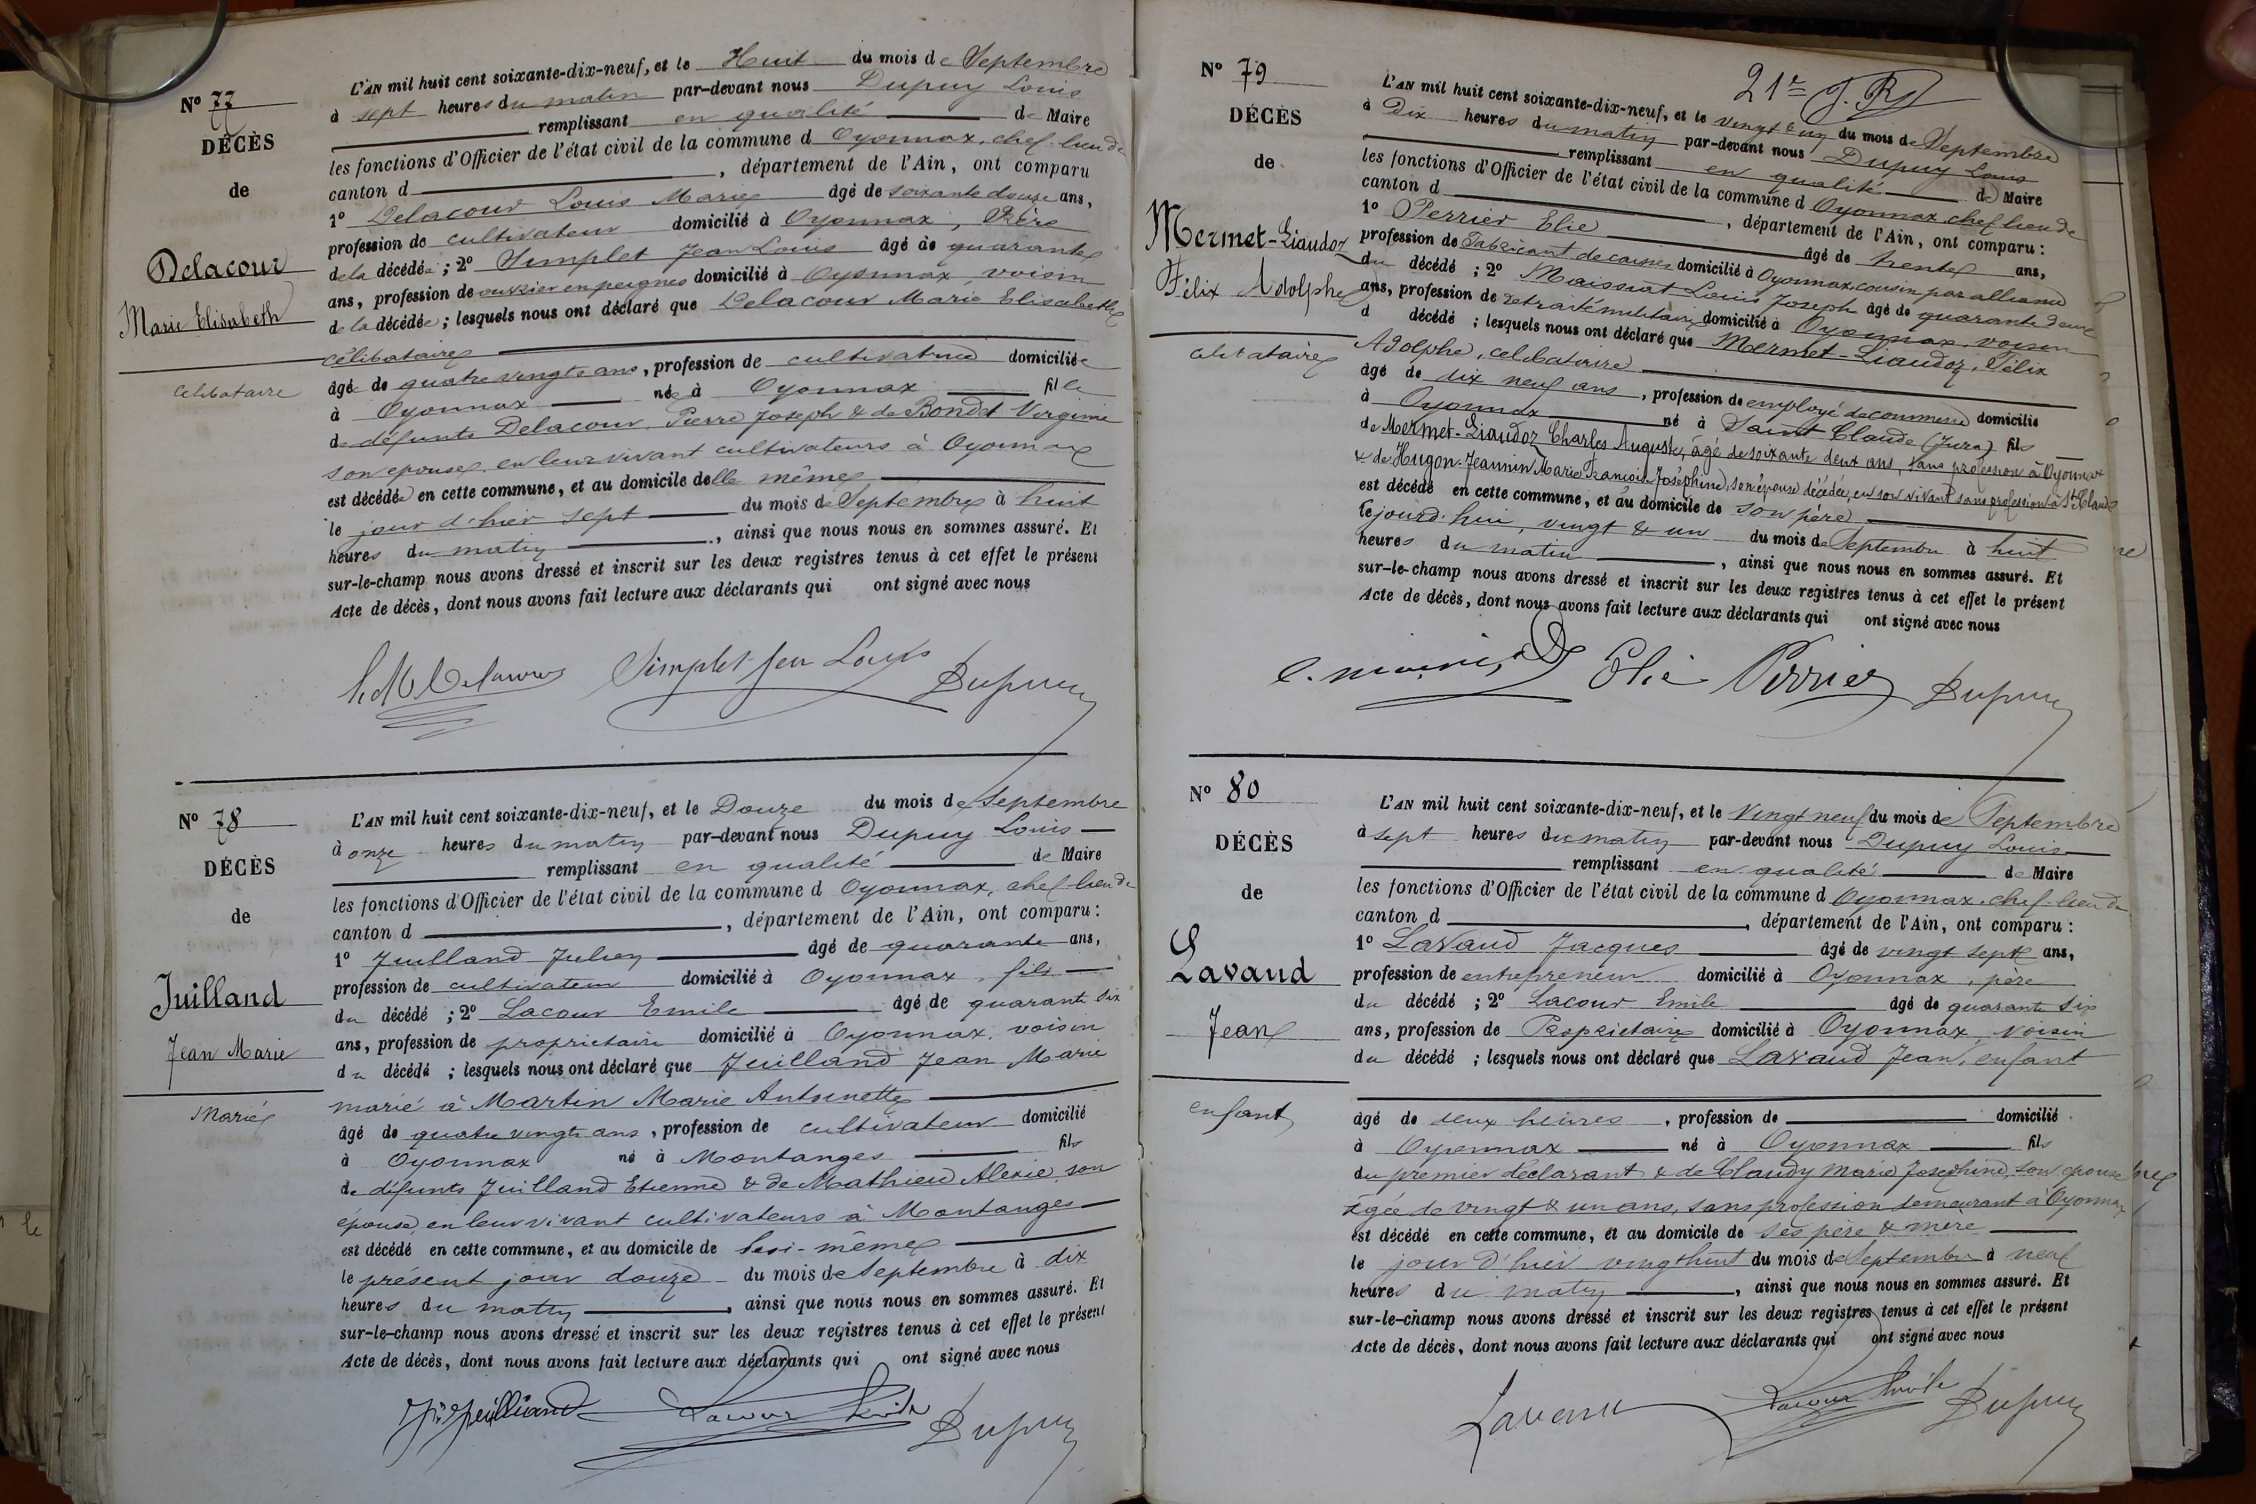 N° 77
DÉCÈS
de
Delacour
Marie Elisabeth
célibataire
L'AN mil huit cent soixante-dix-neuf, et le Huit du mois de Septembre
à sept heures du matin par-devant nous Dupuy Louis
remplissant en qualité de Maire
les fonctions d'Officier de l'état civil de la commune d Oyonnax, chef-lieu de
canton d , département de l'Ain, ont comparu
1° Delacour Louis Marie âgé de soixante douze ans,
profession de cultivateur domicilié à Oyonnax, Frère
de la décédée ; 2° Simplet Jean Louis âgé de quarante
ans, profession de ouvrier en peignes domicilié à Oyonnax voisin
de la décédée ; lesquels nous ont déclaré que Delacour Marie Elisabeth
célibataire
âgée de quatre vingts ans, profession de cultivatrice domiciliée
à Oyonnax née à Oyonnax fille
de défunts Delacour Pierre Joseph & de Bondet Virginie
son epouse en leur vivant cultivateurs à Oyonnax
est décédée en cette commune, et au domicile de elle même
le jour d'hier sept du mois de Septembre à huit
heures du matin , ainsi que nous nous en sommes assuré. Et
sur-le-champ nous avons dressé et inscrit sur les deux registres tenus à cet effet le présent
Acte de décès, dont nous avons fait lecture aux déclarants qui ont signé avec nous
Simplet Jean Louis Dupuy
N° 78
DÉCÈS
de
Juilland
Jean Marie
Marié
L'AN mil huit cent soixante-dix-neuf, et le Douze du mois de Septembre
à onze heures du matin par-devant nous Dupuy Louis
remplissant en qualité de Maire
les fonctions d'Officier de l'état civil de la commune d Oyonnax, chef-lieu de
canton d , département de l'Ain, ont comparu :
1° Juilland Julien âgé de quarante ans,
profession de cultivateur domicilié à Oyonnax, fils
du décédé ; 2° Lacour Emile âgé de quarante six
ans, profession de propriétaire domicilié à Oyonnax, voisin
du décédé ; lesquels nous ont déclaré que Juilland Jean Marie
marié à Martin Marie Antoinette
âgé de quatre vingts ans, profession de cultivateur domicilié
à Oyonnax né à Montanges fils
de défunts Juilland Etienne & de Mathieu Alexie, son
épouse, en leur vivant cultivateurs à Montanges
est décédé en cette commune, et au domicile de lui-même
le présent jour douze du mois de Septembre à dix
heures du matin , ainsi que nous nous en sommes assuré. Et
sur-le-champ nous avons dressé et inscrit sur les deux registres tenus à cet effet le présent
Acte de décès, dont nous avons fait lecture aux déclarants qui ont signé avec nous
Juilliand Lacour Emile Dupuy
21e
N° 79
DÉCÈS
de
Mermet-Liaudoz
Félix Adolphe
célibataire
L'AN mil huit cent soixante-dix-neuf, et le vingt & un du mois de Septembre
à Dix heures du matin par-devant nous Dupuy Louis
remplissant en qualité de Maire
les fonctions d'Officier de l'état civil de la commune d Oyonnax chef lieu de
canton d , département de l'Ain, ont comparu :
1° Perrier Elie âgé de trente ans,
profession de Fabricant de caisses domicilié à Oyonnax, cousin par alliance
du décédé ; 2° Maissiat Louis Joseph âgé de quarante deux
ans, profession de retraité militaire domicilié à Oyonnax, voisin
d décédé ; lesquels nous ont déclaré que Mermet-Liaudoz, Félix
Adolphe, célibataire
âgé de dix neuf ans , profession de employé de commerce domicilié
à Oyonnax né à Saint Claude (Jura) fils
de Mermet-Liaudoz Charles Auguste, âgé de soixante deux ans, sans profession à Oyonnax
& de Hugon-Jeannin Marie Françoise Joséphine, son épouse décédée, en son vivant sans profession à St Claude
est décédé en cette commune, et au domicile de son père
le jourd'hui, vingt & un du mois de Septembre à huit
heures du matin , ainsi que nous nous en sommes assuré. Et
sur-le-champ nous avons dressé et inscrit sur les deux registres tenus à cet effet le présent
Acte de décès, dont nous avons fait lecture aux déclarants qui ont signé avec nous
Elie Perrier Dupuy
N° 80
DÉCÈS
de
Lavaud
Jean
enfant
L'AN mil huit cent soixante-dix-neuf, et le Vingt neuf du mois de Septembre
à sept heures du matin par-devant nous Dupuy Louis
remplissant en qualité de Maire
les fonctions d'Officier de l'état civil de la commune d Oyonnax, chef-lieu de
canton d , département de l'Ain, ont comparu :
1° Lavaud Jacques âgé de vingt sept ans,
profession de entrepreneur domicilié à Oyonnax, père
du décédé ; 2° Lacour Emile âgé de quarante six
ans, profession de Propriétaire domicilié à Oyonnax, voisin
du décédé ; lesquels nous ont déclaré que Lavaud Jean, enfant
âgé de deux heures , profession de domicilié
à Oyonnax né à Oyonnax fils
du premier déclarant & de Claudy Marie Josephine, son epouse
âgée de vingt & un ans, sans profession demeurant à Oyonnax
est décédé en cette commune, et au domicile de ses père & mère
le jour d'hier vingt huit du mois de Septembre à neuf
heures du matin , ainsi que nous nous en sommes assuré. Et
sur-le-champ nous avons dressé et inscrit sur les deux registres tenus à cet effet le présent
Acte de décès, dont nous avons fait lecture aux déclarants qui ont signé avec nous
Lavaud Lacour Emile Dupuy